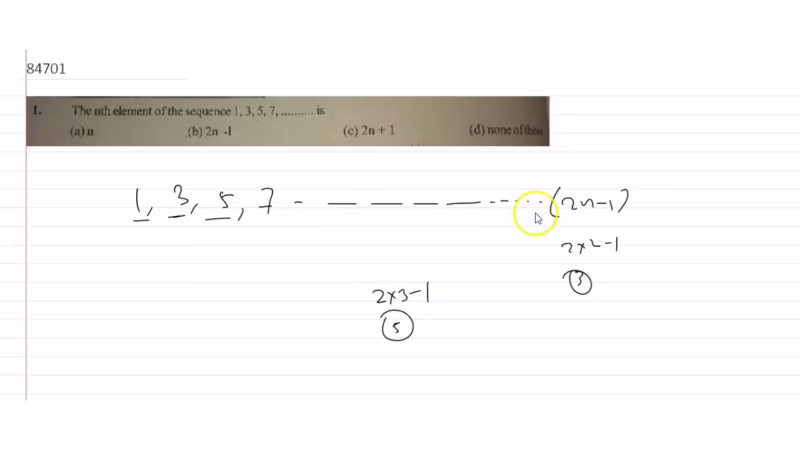 84701
1. The nth element of the sequence 1, 3, 5, 7, .......... is
(a) n (b) 2n -1 (c) 2n + 1 (d) none of these
1, 3, 5, 7 - — — — — - - . . . (2n-1)
2×2-1
3
2×3-1
5